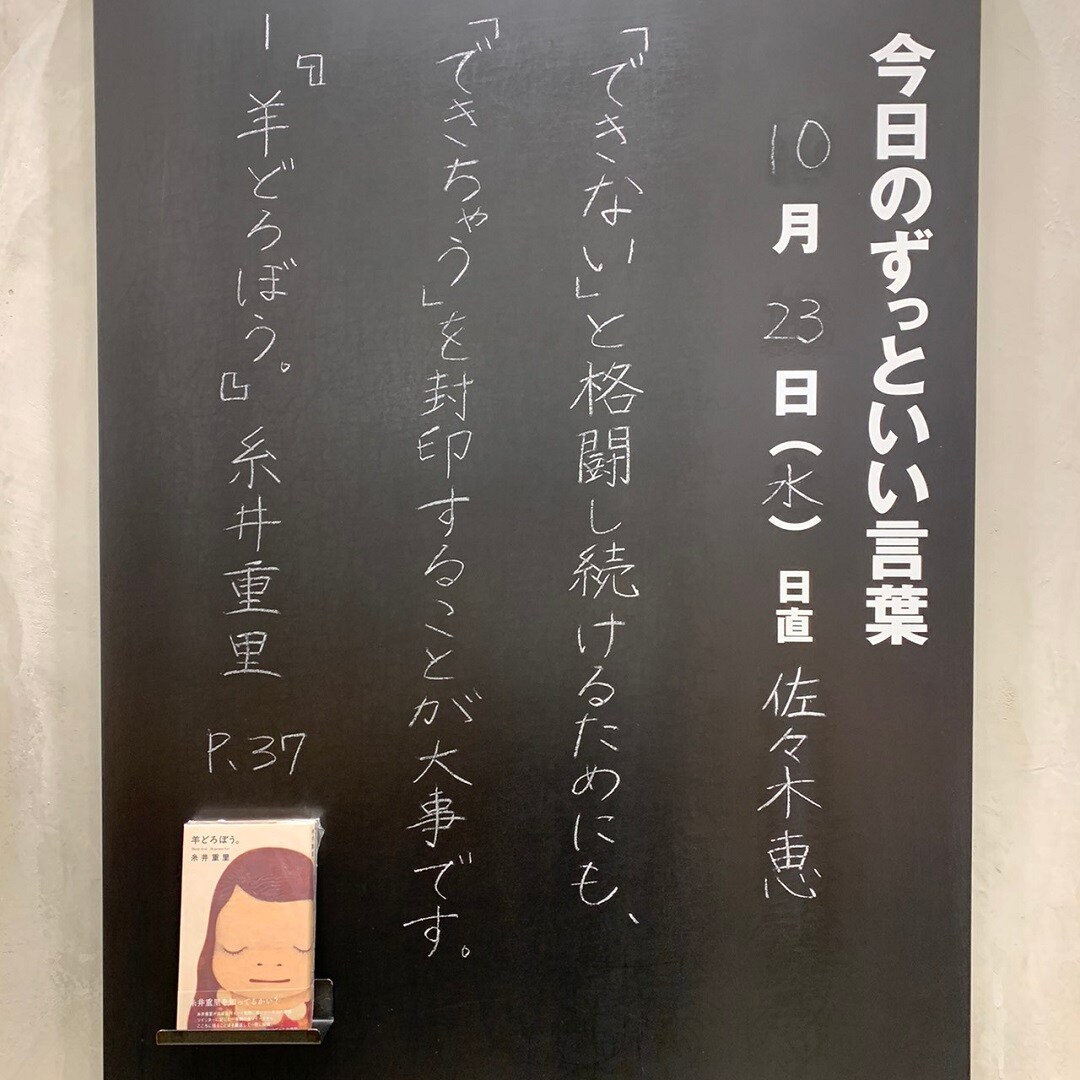 今日のずっといい言葉
10月23日(水) 日直 佐々木恵
「できない」と格闘し続けるためにも、
「できちゃう」を封印することが大事です。
ー『羊どろぼう。』糸井重里 P.37
羊どろぼう。
糸井重里
糸井重里を知ってるかい?